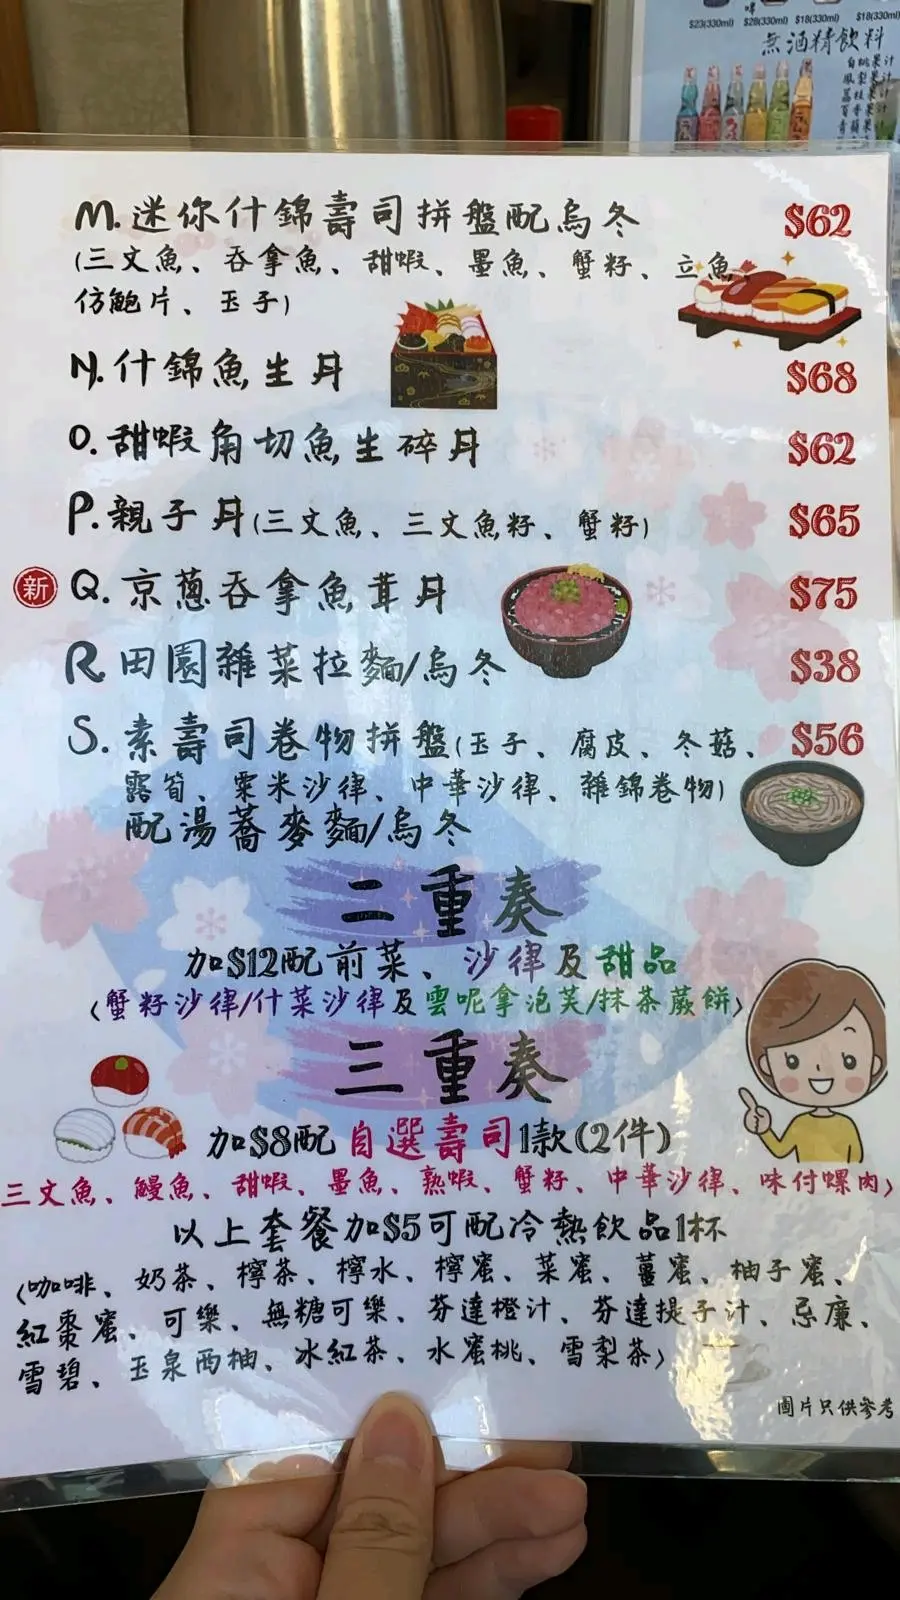 $23(330ml) $28(330ml) $18(330ml) $18(330ml)
無酒精飲料
M.迷你什錦壽司拼盤配烏冬 $62
(三文魚、吞拿魚、甜蝦、墨魚、蟹籽、立魚、
仿鮑片、玉子)
N.什錦魚生丼 $68
O.甜蝦角切魚生碎丼 $62
P.親子丼(三文魚、三文魚籽、蟹籽) $65
新 Q.京蔥吞拿魚茸丼 $75
R.田園雜菜拉麵/烏冬 $38
S.素壽司卷物拼盤(玉子、腐皮、冬菇、 $56
露筍、粟米沙律、中華沙律、雜錦卷物)
配湯蕎麥麵/烏冬
二重奏
加$12配前菜、沙律及甜品
(蟹籽沙律/什菜沙律及雲呢拿泡芙/抹茶蕨餅)
三重奏
加$8配自選壽司1款(2件)
三文魚、鰻魚、甜蝦、墨魚、熟蝦、蟹籽、中華沙律、味付螺肉)
以上套餐加$5可配冷熱飲品1杯
(咖啡、奶茶、檸茶、檸水、檸蜜、菜蜜、薑蜜、柚子蜜、
紅棗蜜、可樂、無糖可樂、芬達橙汁、芬達提子汁、忌廉、
雪碧、玉泉西柚、冰紅茶、水蜜桃、雪梨茶)
圖片只供參考